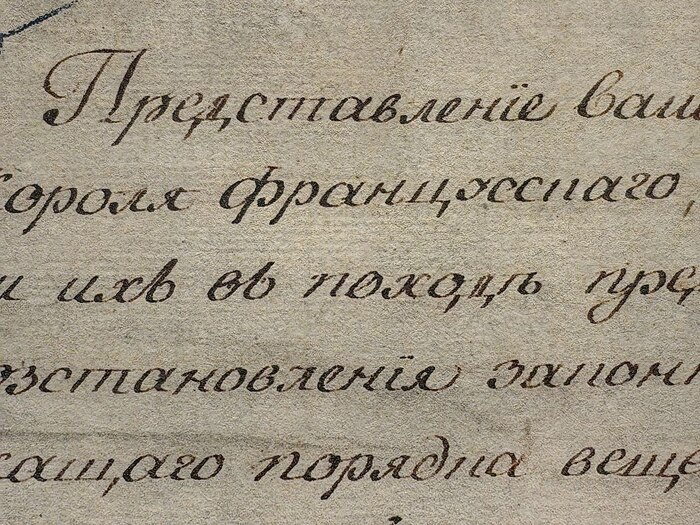 Представленїе ваш
Короля французскаго,
и ихъ въ походѣ пред
озстановленїя законн
жащаго порядка веще